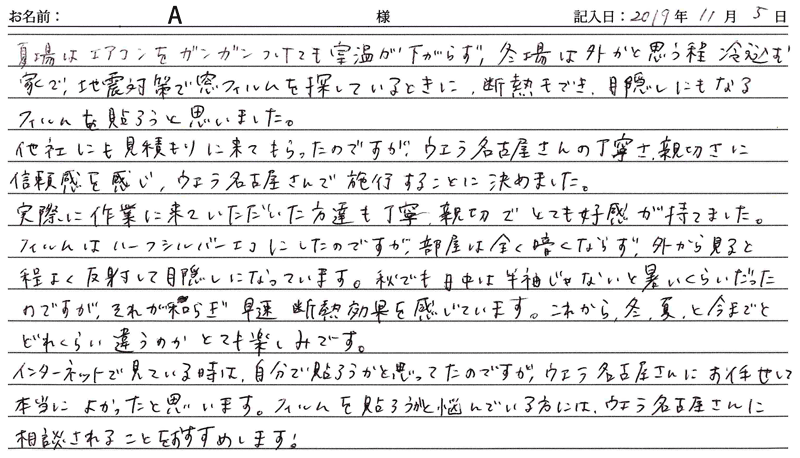 お名前： A 様 記入日：2019年 11月 5日
夏場はエアコンをガンガンつけても室温が下がらず、冬場は外かと思う程 冷え込む
家で、地震対策で窓フィルムを探しているときに、断熱もでき、目隠しにもなる
フィルムを貼ろうと思いました。
他社にも見積もりに来てもらったのですが、ウエラ名古屋さんの丁寧さ、親切さに
信頼感を感じ、ウエラ名古屋さんで施行することに決めました。
実際に作業に来ていただいた方達も丁寧、親切でとても好感が持てました。
フィルムはハーフシルバーエコにしたのですが、部屋は全く暗くならず、外から見ると
程よく反射して目隠しになっています。秋でも日中は半袖じゃないと暑いくらいだった
のですが、それが和らぎ 早速 断熱効果を感じています。これから、冬、夏、と今までと
どれくらい違うのかとても楽しみです。
インターネットで見ている時は、自分で貼ろうかと思ってたのですが、ウエラ名古屋さんにお任せして
本当によかったと思います。フィルムを貼ろうかと悩んでいる方には、ウエラ名古屋さんに
相談されることをおすすめします！